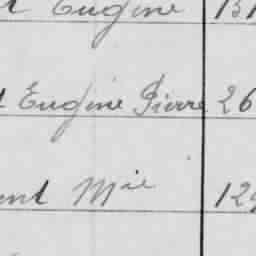 Eugène 131
Eugène Pierre 26
Mie 12